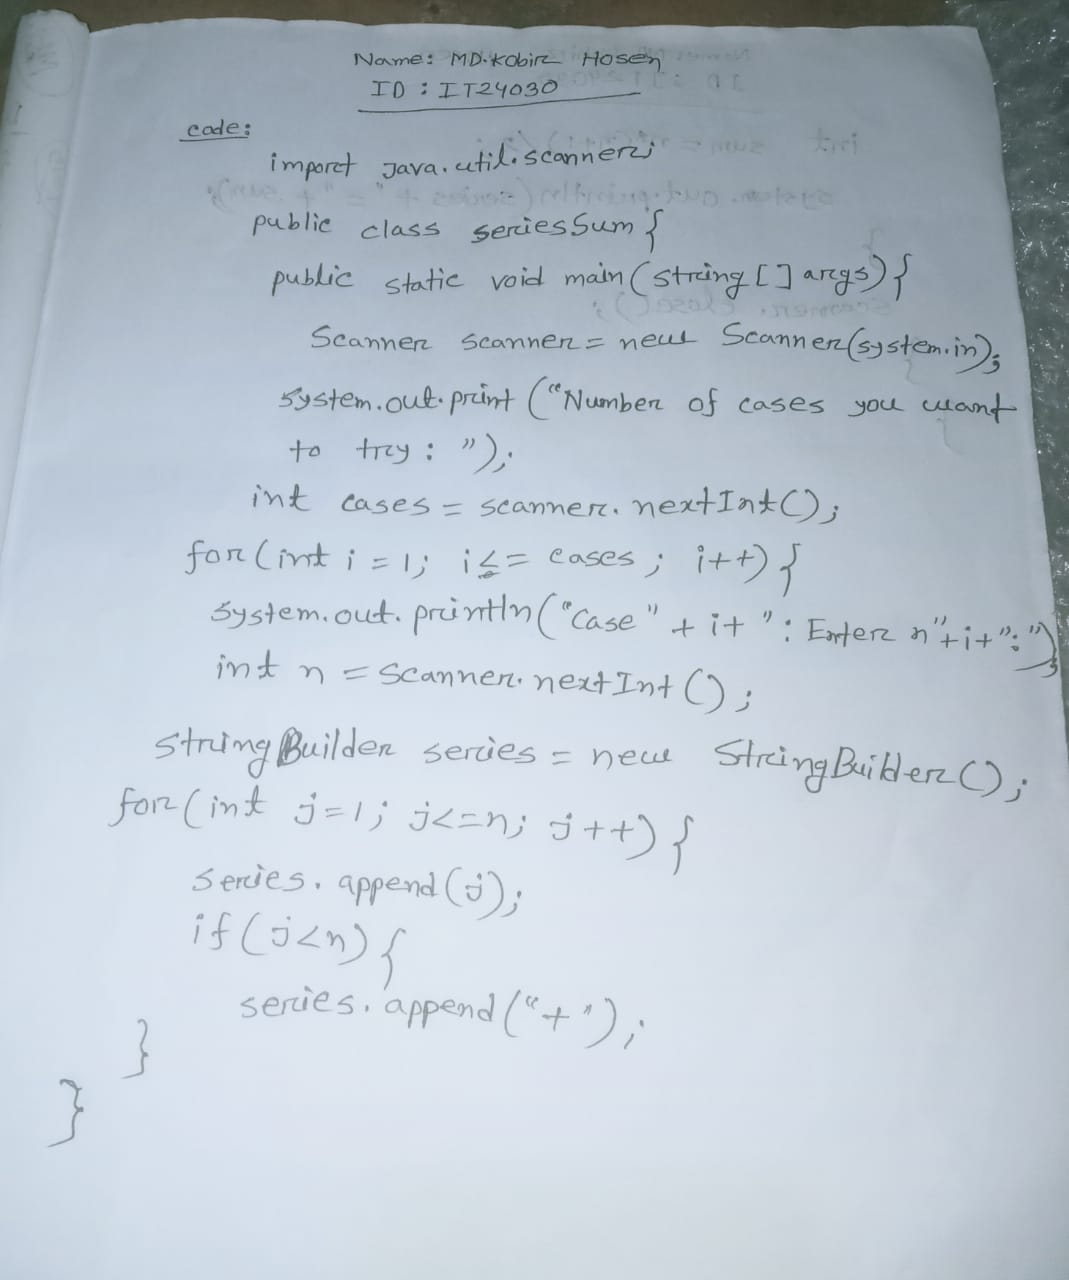 Name: MD. Kobir Hosen
ID : IT24030
code:
import java.util.scanner;
public class seriesSum {
public static void main(string [] args) {
Scanner scanner = new Scanner(system.in);
system.out.print ("Number of cases you want
to try : ");
int cases = scanner. nextInt();
for (int i = 1; i <= cases ; i++) {
system.out. println ("Case" + i+ ": Enter n"+i+":");
int n = scanner. nextInt ();
string Builder series = new StringBuilder();
for (int j=1; j<=n; j++) {
series. append (j);
if (j<n) {
series. append ("+");
}
}